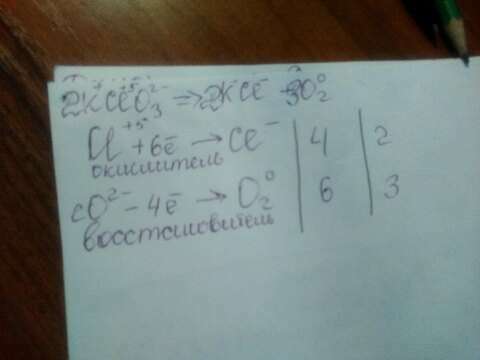 2KClO₃ => 2KCl⁻ 3O₂⁰
Cl⁺⁵ + 6e̅ → Cl⁻ | 4 | 2
окислитель
2O²⁻ - 4e̅ → O₂⁰ | 6 | 3
восстановитель